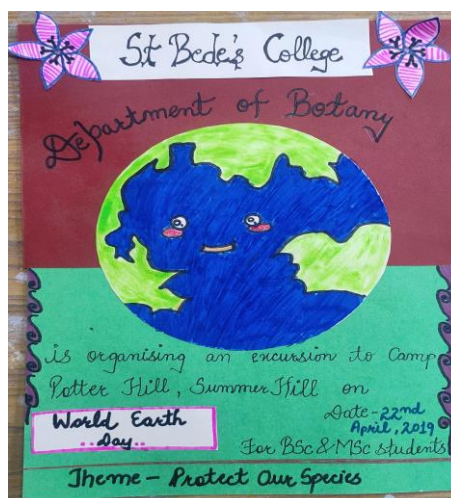 St Bede's College
Department of Botany
is organising an excursion to Camp
Potter Hill, Summer Hill on
World Earth
Day
Date - 22nd
April, 2019
For BSc & MSc students
Theme - Protect Our Species